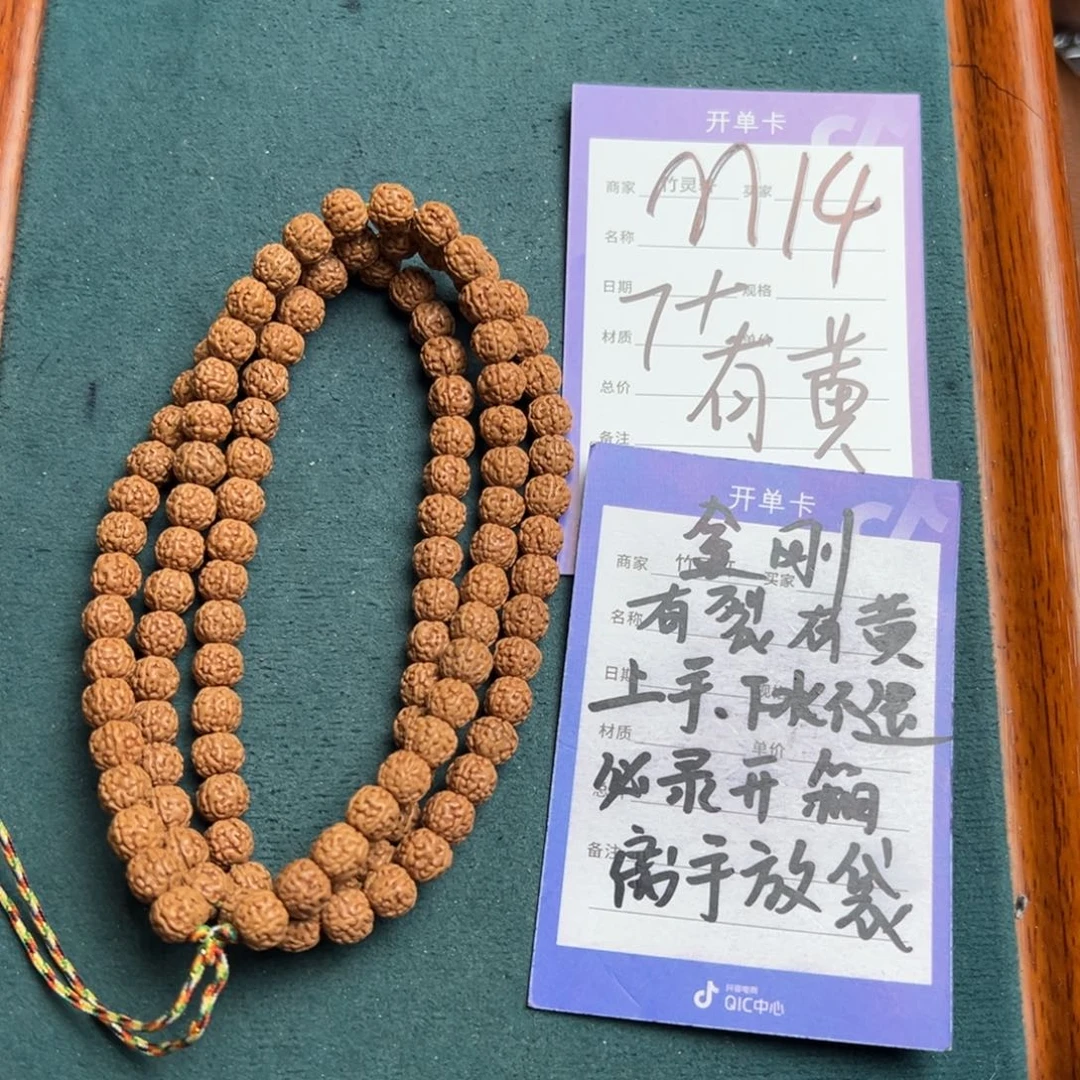 开单卡
商家 竹灵 买家
M14
名称
日期 规格
7+
材质 单价
有黄
总价
备注
开单卡
金刚
商家 竹 买家
名称
有裂有黄
日期
上手.下水不退
材质 单价
必录开箱
备注
离手放袋
抖音电商
QIC中心